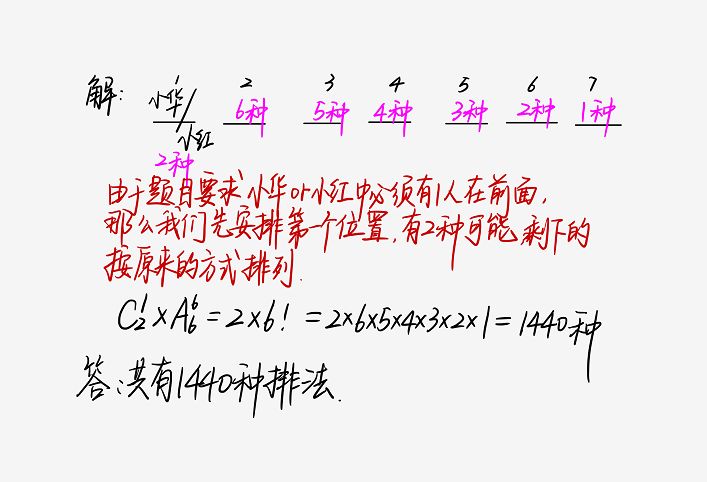 解: 小华/ 2 3 4 5 6 7
1
小红 6种 5种 4种 3种 2种 1种
2种
由于题目要求小华or小红中必须有1人在前面,
那么我们先安排第一个位置,有2种可能剩下的
按原来的方式排列.
C₂¹×A₆⁶=2×6! =2×6×5×4×3×2×1=1440种
答:共有1440种排法.